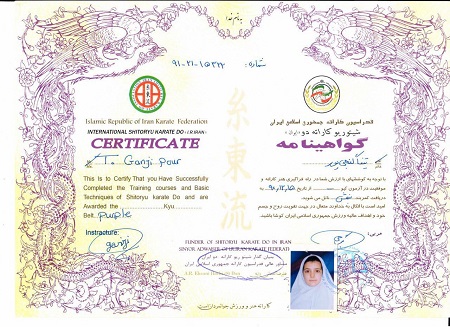 بنام خدا
شماره: ۹۱-۲۱-۱۵۳۲۲
Islamic Republic of Iran Karate Federation
INTERNATIONAL SHITORYU KARATE DO (I.R IRAN)
CERTIFICATE
To Ganji pour
This is to Certify that you Have Successfully
Completed the Training courses and Basic
Techniques of Shitoryu karate Do and are
Awarded the Kyu
Belt. purple
Instructure:
ganji
فدراسیون کاراته جمهوری اسلامی ایران
شیتوریو کاراته دو (ایران)
گواهینامه
با توجه به کوششهای با ارزش شما در راه فراگیری هنر کاراته و
موفقیت در آزمون کیو از تاریخ
دریافت کمربند نائل می شوید.
امید است با اتکال به خداوند متعال در جهت تقویت روح و جسم
خود و اهداف عالیه ورزش جمهوری اسلامی ایران کوشا باشید.
مربی:
糸東流
FUNDER OF SHITORYU KARATE DO IN IRAN
SENIOR ADWISER OF I.R.IRAN KARATE FEDERATION
بنیان گذار شیتوریو کاراته دو ایران
مشاور عالی فدراسیون کاراته جمهوری اسلامی ایران
کاراته هنر و ورزش جوانمردان است.